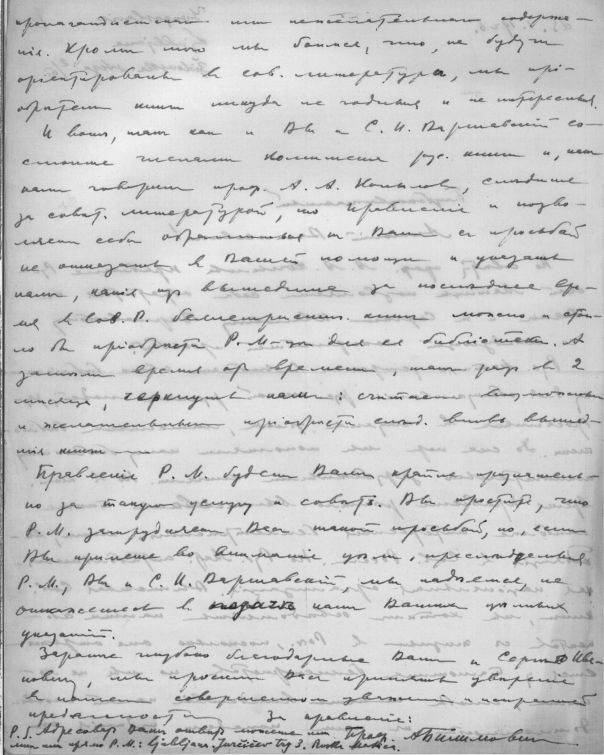 пропагандистскаго или нежелательнаго содержа-
нія. Кромѣ того мы боимся, что, не будучи
оріентированы въ сов. литературѣ, мы прі-
обрѣтем книги никуда не годныя и не интересныя.
И вот, так как и Вы и С. И. Варшавскій со-
стоите членами Комитета рус. книги и, как
нам говорил проф. А. А. Копылов, слѣдите
за совѣт. литературой, то Правленіе и позво-
ляет себѣ обратиться к Вам с просьбой
не отказать в Вашей помощи и указать
нам, какія из вышедших за послѣднее вре-
мя в Сов. Р. беллетристич. книг можно и стои-
ло бы пріобрѣсти Р. М-цѣ для ея библіотеки. А
затѣм время от времени, так раз в 2
мѣсяца, черкнуть нам: считаем возможным
и желательным пріобрѣсти слѣд. вновь вышед-
шія книги
Правленіе Р. М. будет Вам крайне признатель-
но за такую услугу и совѣт. Вы простите, что
Р. М. затрудняет Вас такой просьбой, но, если
Вы примете во вниманіе цѣли, преслѣдуемыя
Р. М., Вы и С. И. Варшавскій, мы надѣемся, не
откажетесь в подачѣ нам Ваших цѣнных
указаній.
Заранѣе глубоко благодарные Вам и Сергѣю Ива-
новичу, мы просим Вас принять увѣреніе
в нашем совершенном уваженіи и искренней
преданности
За правленіе:
Проф. А Билимович
P. S. Адресовать Ваш отвѣт можно или
или прямо Р. М.: Ljubljana, Jurčičev trg 3. Ruska Matica.